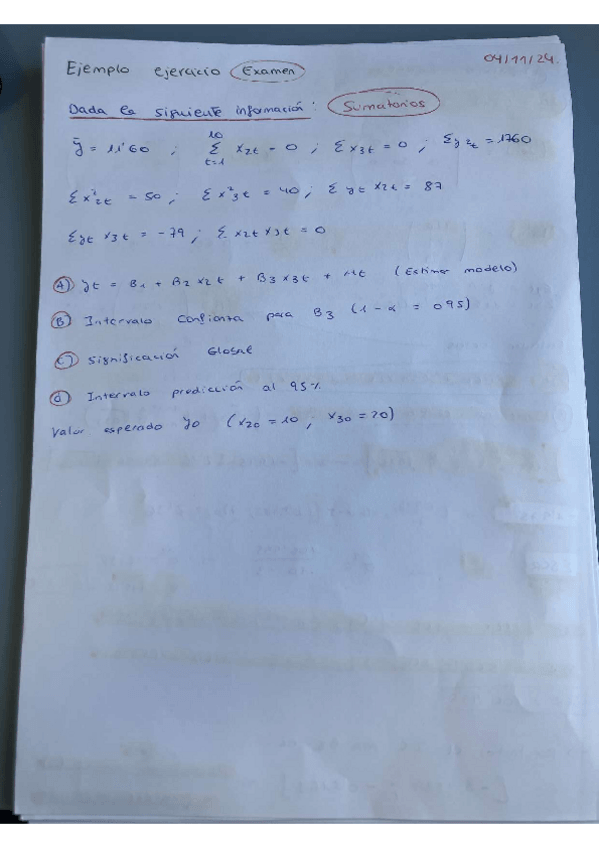 04/11/24.
Ejemplo ejercicio Examen
Dada la siguiente información: Sumatorios
ȳ = 11'60 ; 10 Σ t=1 x2t = 0 ; Σ x3t = 0 ; Σy²t = 1760
Σ x²2t = 50 ; Σ x²3t = 40 ; Σ yt x2t = 87
Σyt x3t = -79 ; Σ x2t x3t = 0
A) yt = B1 + B2 x2t + B3 x3t + Mt (Estimar modelo)
B) Intervalo confianza para B3 (1 - α = 095)
C) Significación Global
d) Intervalo predicción al 95%
Valor esperado y0 (x20 = 10, x30 = 20)